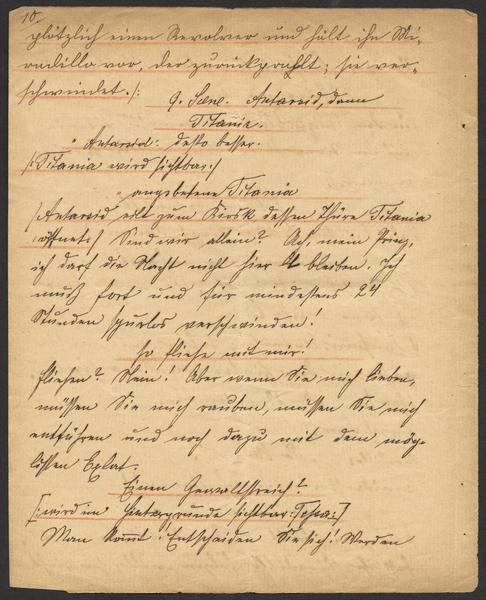 10.
plötzlich einen Revolver und hält ihn Mi-
radillo vor, der zurückprallt; sie ver-
schwindet. /:
9. Scene. Antaroid, dann
Titania.
Antaroid: desto besser.
/: Titania wird sichtbar :/
angebetene Titania
/ Antaroid eilt zum Kiosk, dessen Thüre Titania
öffnet :/ Sind wir allein? Ach, mein Prinz,
ich darf die Nacht nicht hier bleiben. Ich
muß fort und für mindestens 24
Stunden spurlos verschwinden!
So fliehe mit mir!
fliehen? Nein! Aber wenn Sie mich lieben,
müssen Sie mich rauben, müssen Sie mich
entführen und noch dazu mit dem mög-
lichsten Eclat.
Einen Gewaltstreich?
[: wird im Hintergrunde sichtbar :]
Man kommt! Entscheiden Sie sich! Werden